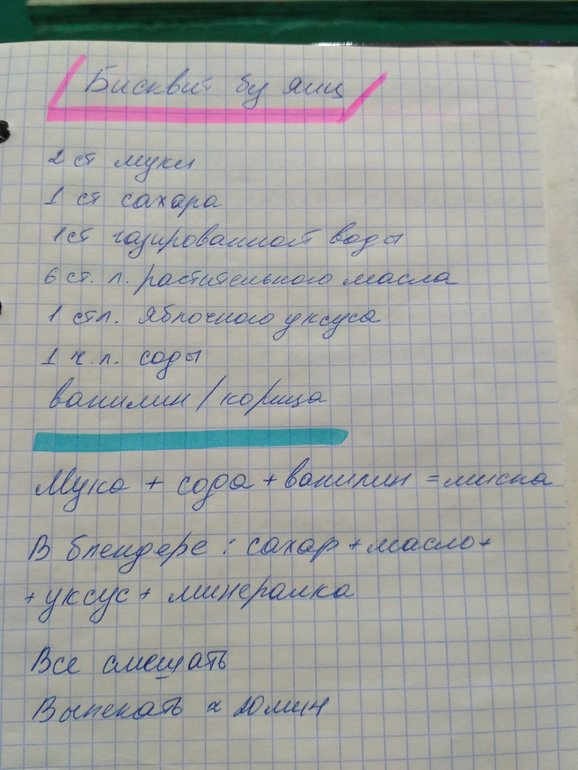 Бисквит бз яиц
2 ст муки
1 ст сахара
1 ст газированной воды
6 ст. л. растительного масла
1 стл. яблочного уксуса
1 ч.л. соды
ванилин / корица
Мука + сода + ванилин = миска
В блендере : сахар + масло +
+ уксус + минералка
Все смещать
Выпекать ≈ 20 мин